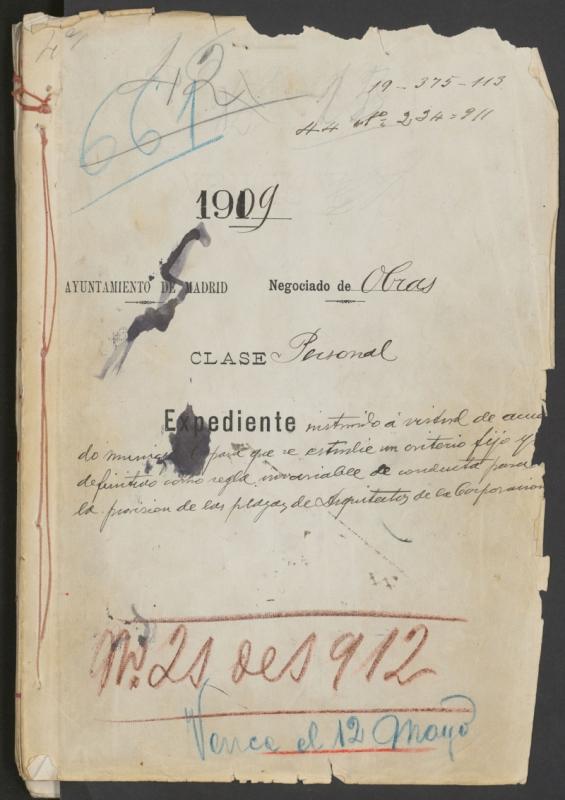 42
661
19-375-113
44 nº 234=911
1909
AYUNTAMIENTO DE MADRID Negociado de Obras
CLASE Personal
Expediente instruido á virtud de acuer
do para que se estudie un criterio fijo y
definitivo como regla invariable de conducta para
la provision de las plazas de Arquitectos de la Corporacion
Nº. 21 de 1912
Vence el 12 Mayo